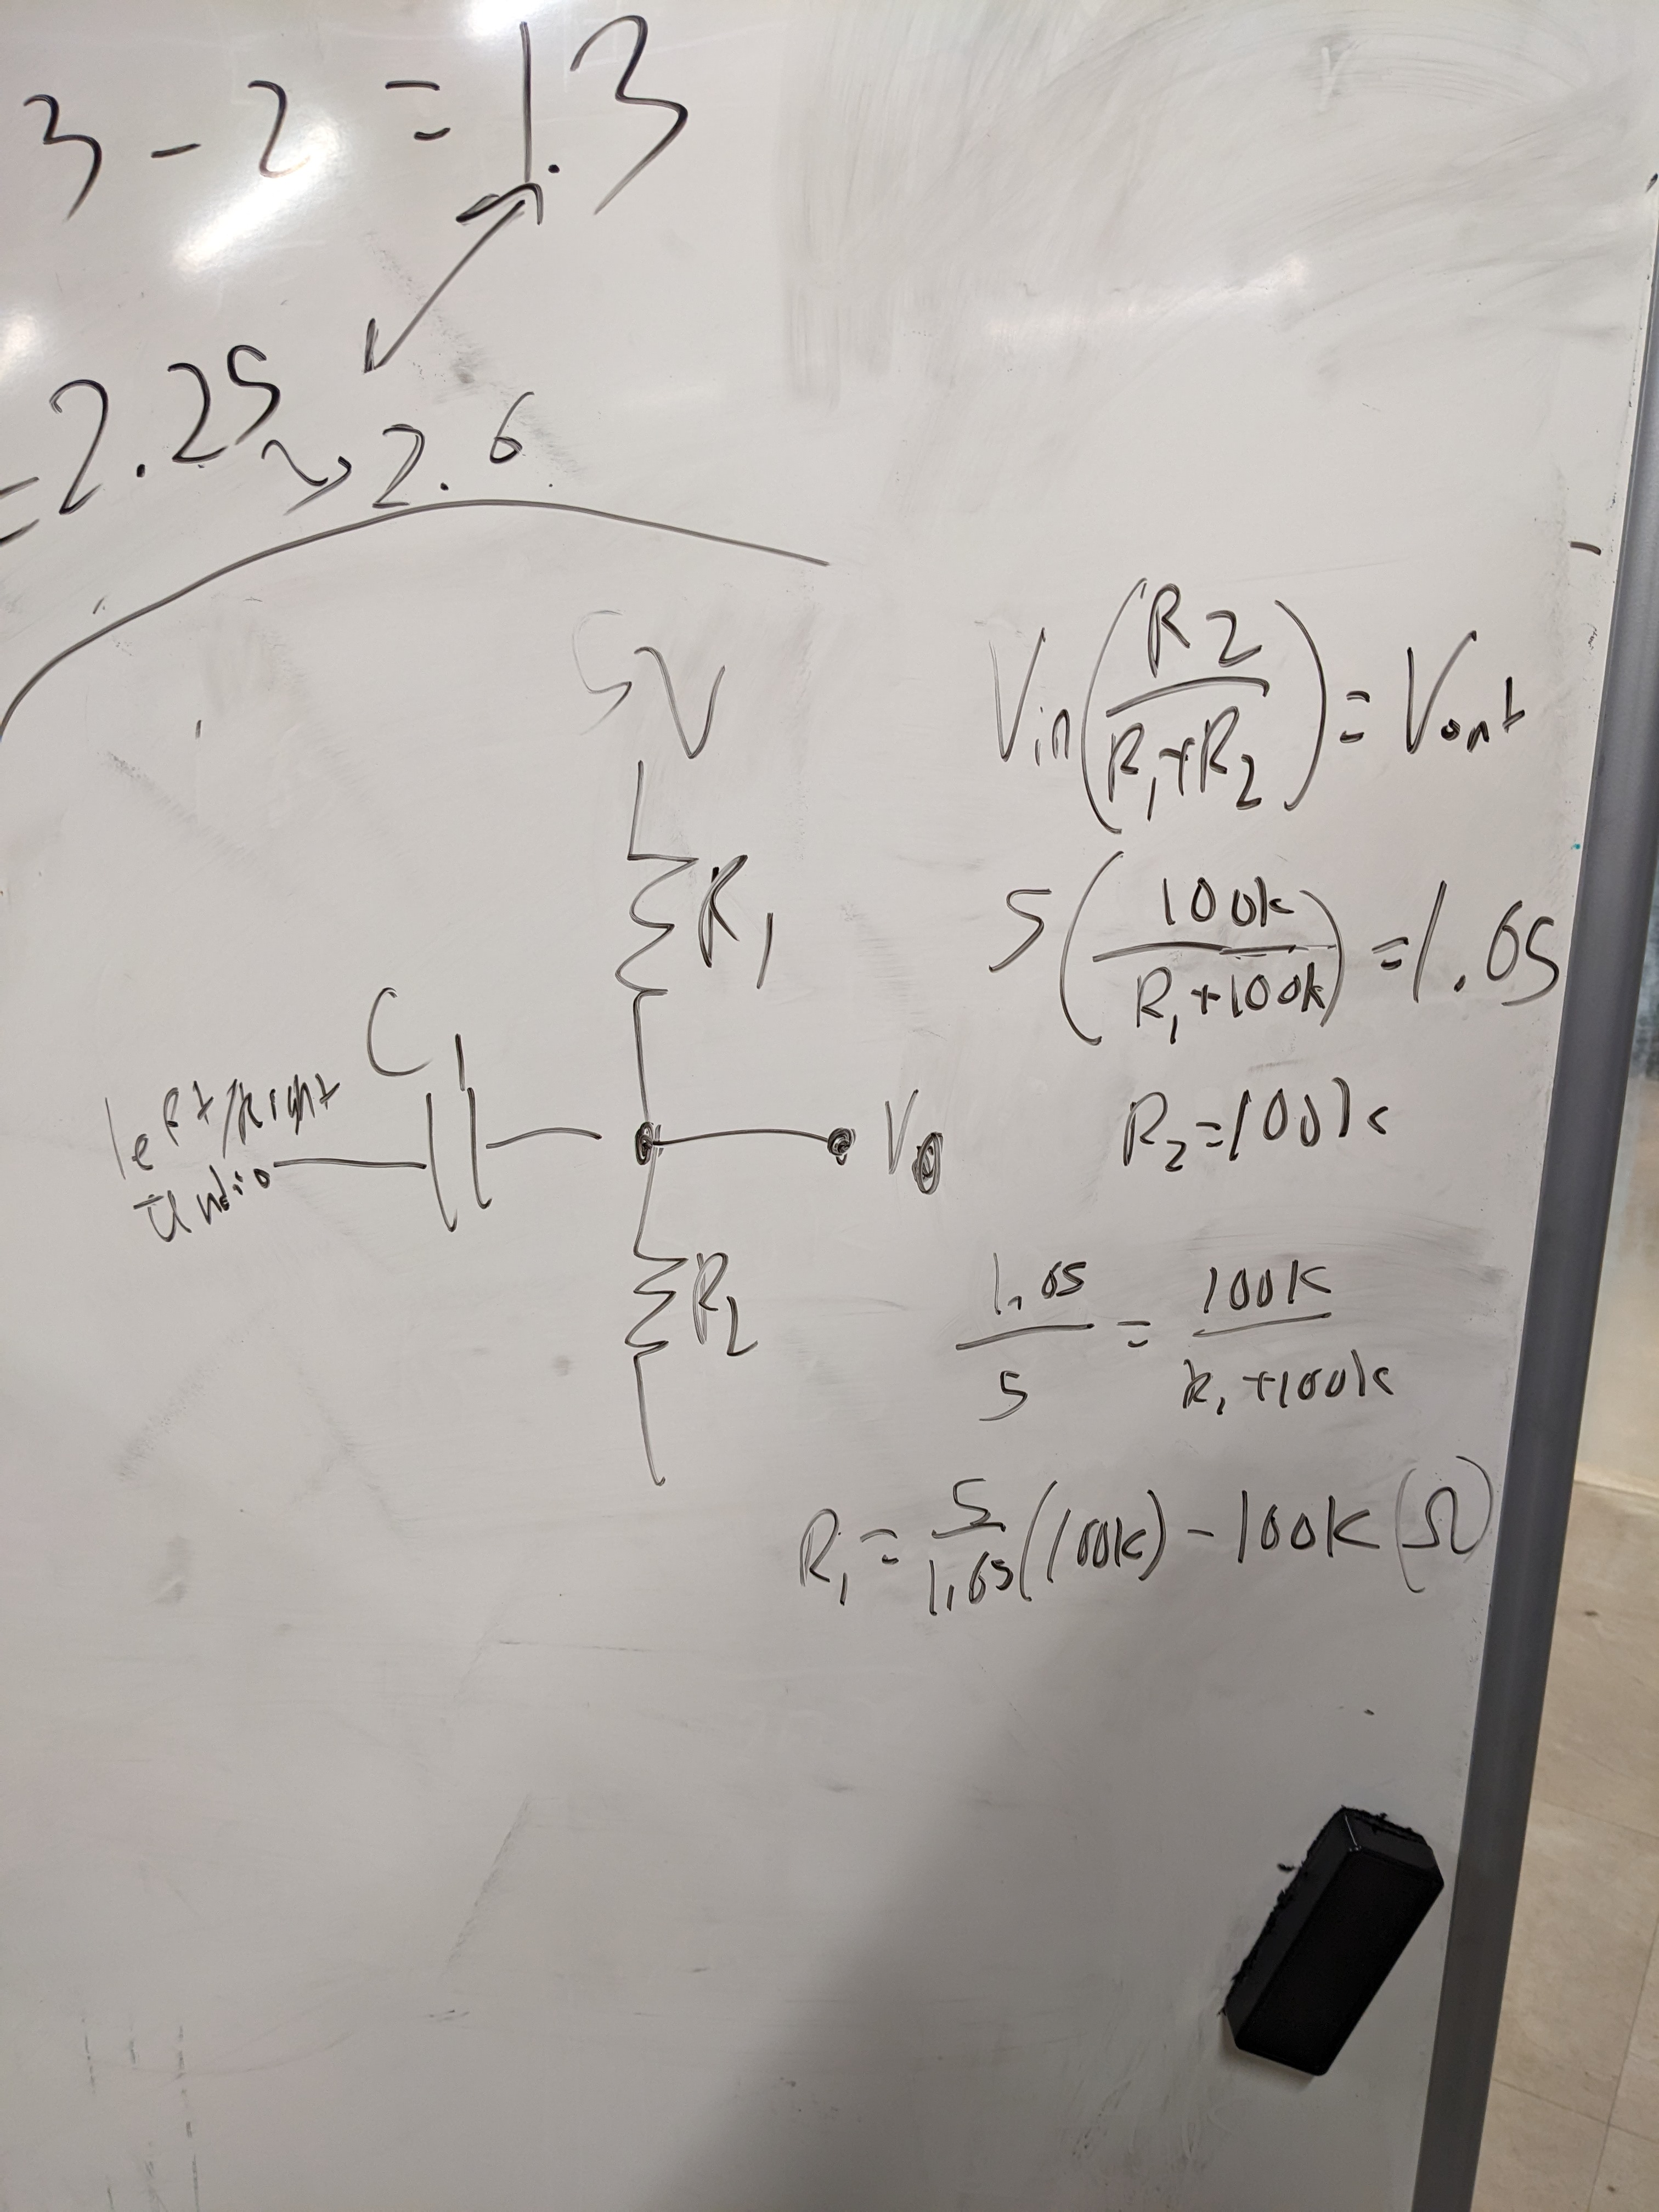 3 - 2 = 1.3
= 2.25 → 2.6
5V
R1
C1
left/Right
audio
V0
R2
Vin(R2/(R1+R2)) = Vout
5(100k/(R1+100k)) = 1.65
R2=100k
1.65/5 = 100k/(R1+100k)
R1 = 5/1.65(100k) - 100k (Ω)